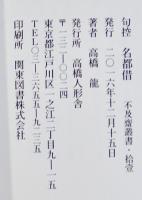 句控 名都借
不及齋叢書・拾壹
発行 二〇一六年十二月十五日
著者 高橋 龍
発行所 高橋人形舎
〒一三二―〇〇二四
東京都江戸川区一之江二丁目九―一五
TEL〇三―三六五五―九二三五
印刷所 関東図書株式会社